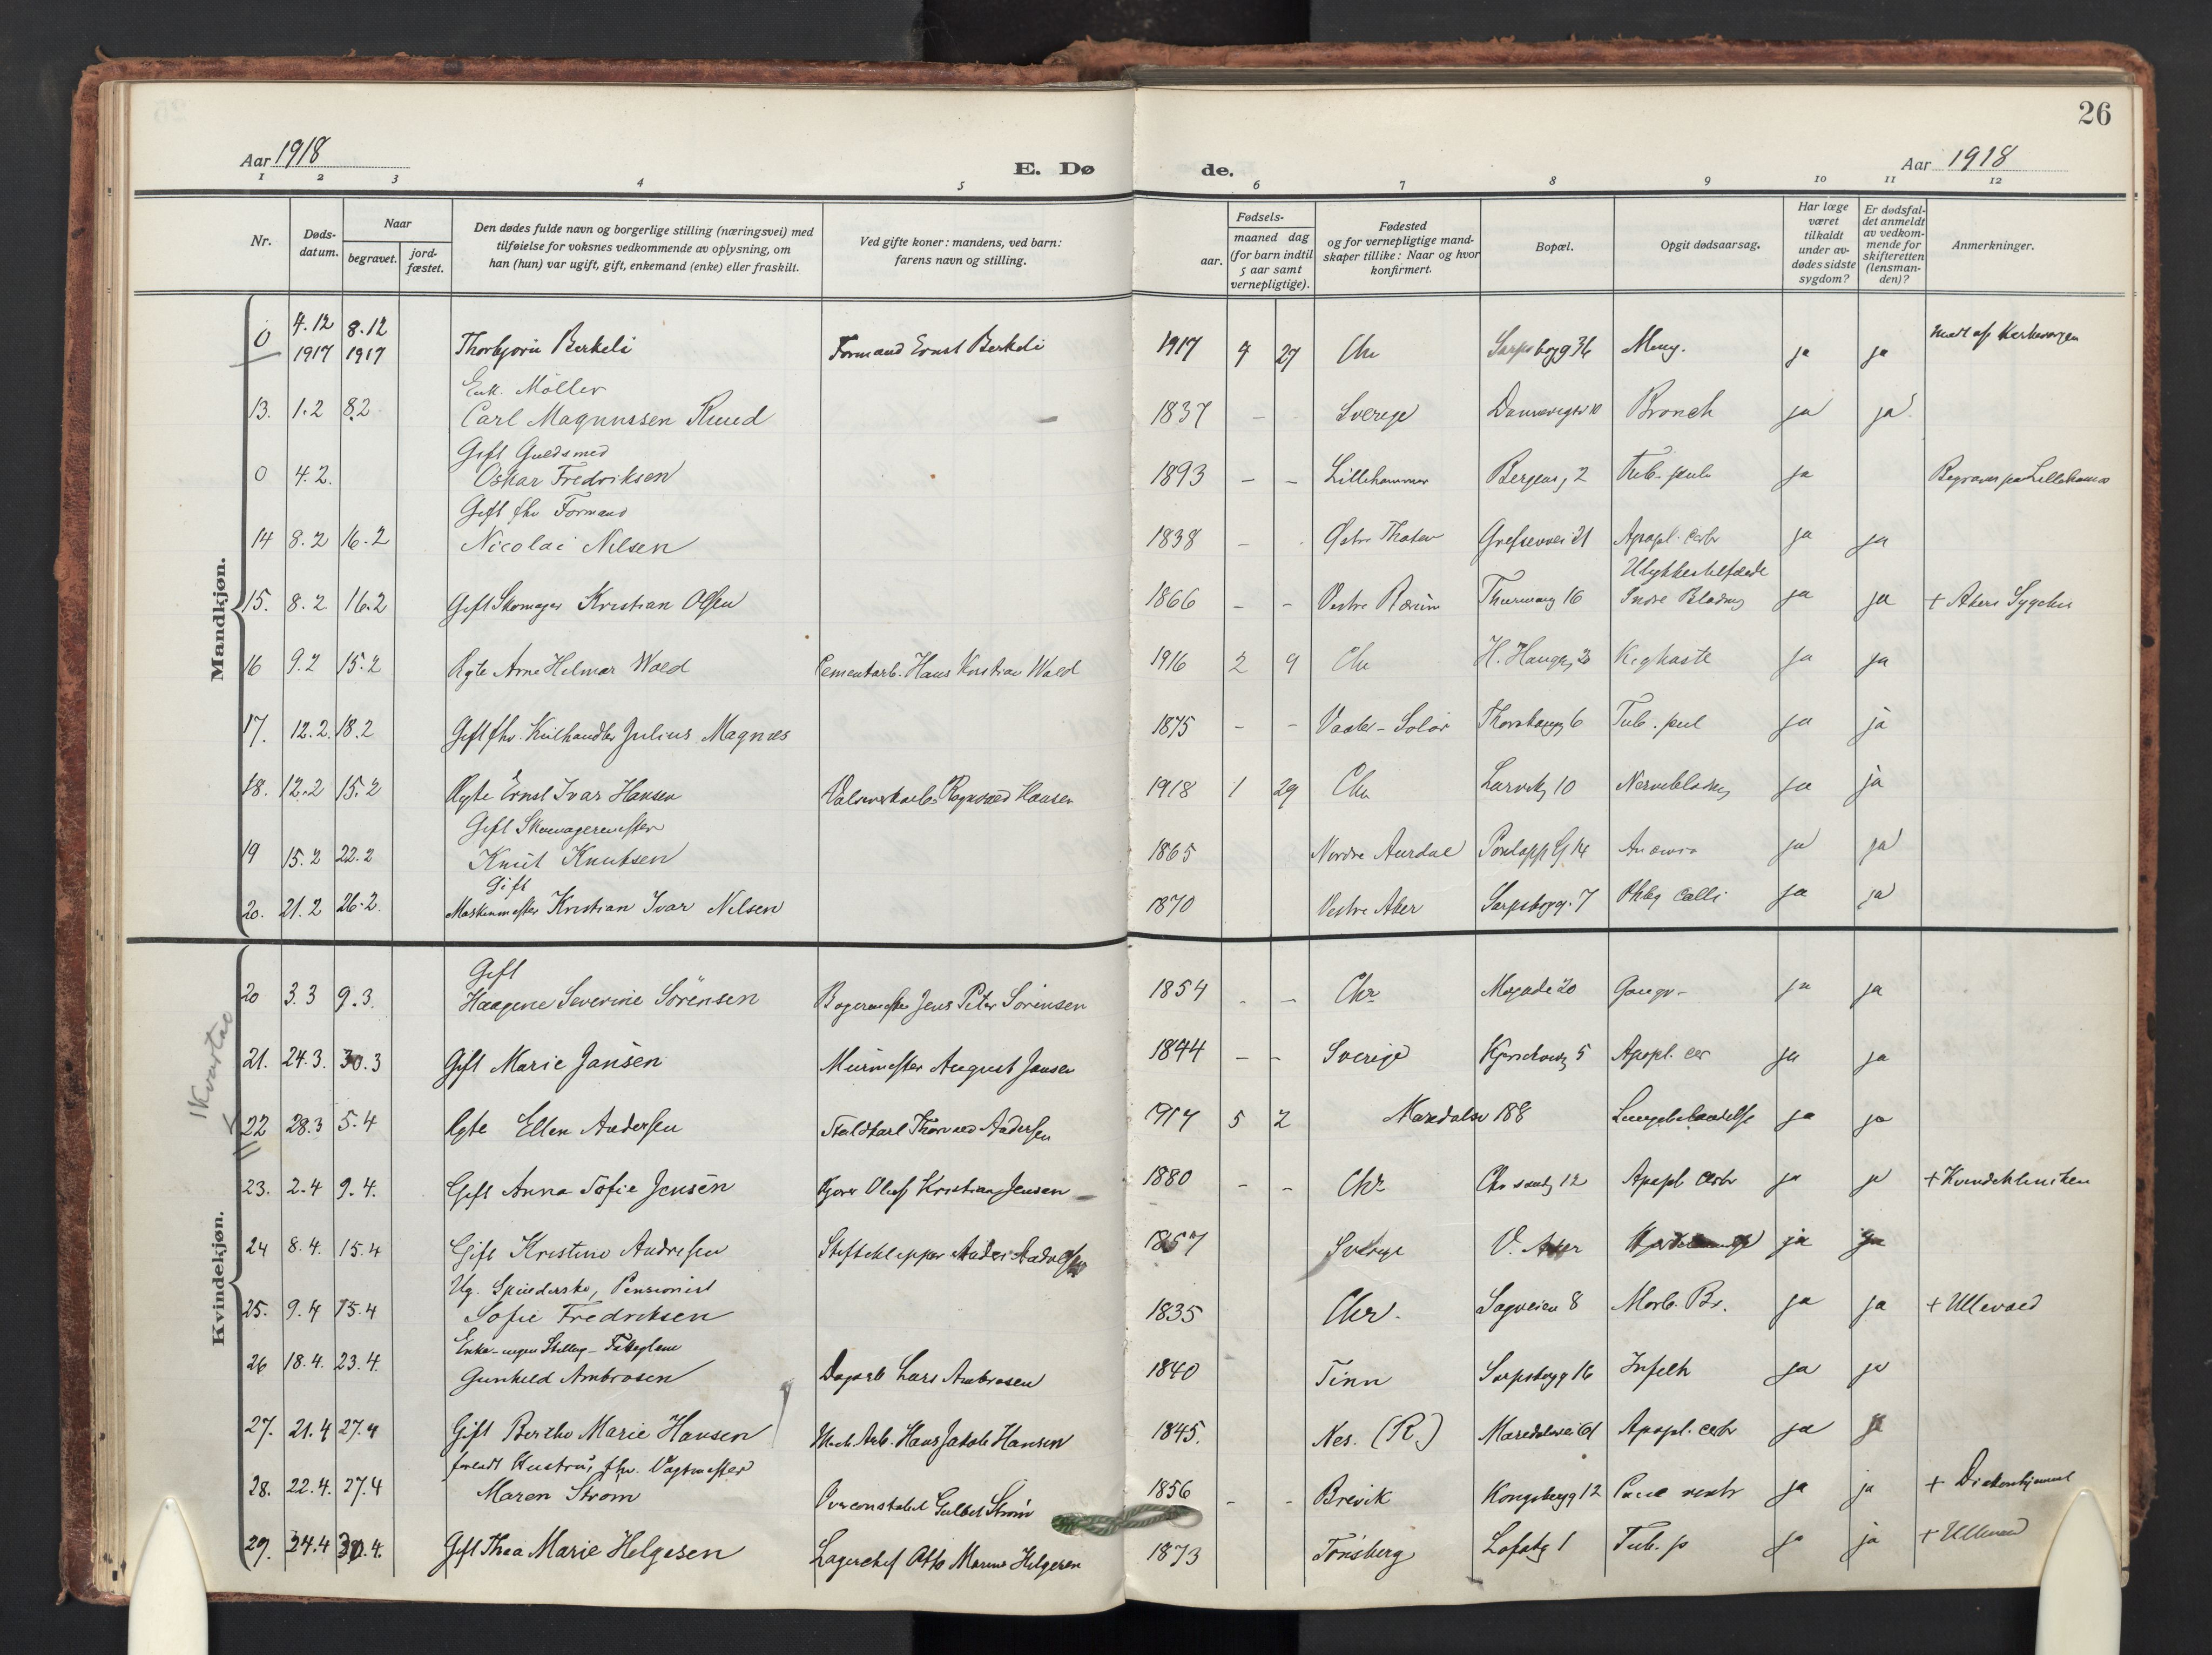 26
Aar 1918
E. Dø
de.
Aar 1918
1 2 3 4 5 6 7 8 9 10 11 12
Nr.
Døds-
datum.
Naar
begravet.
jord-
fæstet.
Den dødes fulde navn og borgerlige stilling (næringsvei) med
tilføielse for voksnes vedkommende av oplysning, om
han (hun) var ugift, gift, enkemand (enke) eller fraskilt.
Ved gifte koner: mandens, ved barn:
farens navn og stilling.
Fødsels-
aar.
maaned dag
(for barn indtil
5 aar samt
vernepligtige).
Fødested
og for vernepligtige mand-
skaper tillike: Naar og hvor
konfirmert.
Bopæl.
Opgit dødsaarsag.
Har læge
været
tilkaldt
under av-
dødes sidste
sygdom?
Er dødsfal-
det anmeldt
av vedkom-
mende for
skifteretten
(lensman-
den)?
Anmerkninger.
Mandkjøn.
0 4.12 1917 8.12 1917 Thorbjørn Berkeli Formand Ernst Berkeli 1917 9 27 Chr Sarpsborgg 36 Meng. ja ja
Enk. Möller
13. 1.2 8.2 Carl Magnussen Ruud 1837 - Sverige Dannevigsv 10 Bronch ja ja
Gift Guldsmed
0 4.2. Oskar Fredriksen 1893 - - Lillehammer Bergensg 2 Tub. pulm ja Begraves paa Lillehammer
Gift fhv Formand
14 8.2 16.2 Nicolai Nilsen 1838 - Østre Thoten Grefsenvei 21 Apopl. cerbr ja ja
Ulykkestilfælde
15. 8.2 16.2 Gift Skomager Kristian Olsen 1866 - - Vestre Bærum 16 Indre Blødng ja ja + Akers Sygehus
16 9.2 15.2 Ægte Arne Hilmar Wold Cementarb. Hans Kristian Wold 1916 2 9 Chr H. Haugesg 20 Kighoste ja ja
17. 12.2. 18.2 Gift fhv. Kulhandler Julius Magnæs 1875 - - Vaaler - Solør Thorshaugg 6 Tub. pul ja ja
18. 12.2 15.2 Ægte Ernst Ivar Hansen Valseverksarb. Ragnvald Hansen 1918 1 29 Chr Larvikg 10 ja ja
Gift Skomagermester
19 15.2 22.2 Knut Knutsen 1865 Nordre Aurdal 14 ja ja
Gift
20. 21.2 26.2. Maskinmester Kristian Ivar Nilsen 1870 Vestre Aker Sarpsborgg. 7 ja ja
Kvindekjøn.
Gift
20 3.3 9.3. Haagine Severine Sörensen Bagermester Jens Peter Sörensen 1854 - - Chr 20 ja ja
21. 24.3. 30.3 Gift Marie Jansen Murmester August Jansen 1844 - - Sverige 5 Apopl. cer ja ja
22 28.3 5.4 Ægte Ellen Andersen Staldkarl Thorvald Andersen 1917 5 2 Maridalsv 188 Lungebetændelse ja ja
23. 2.4 9.4. Gift Anna Sofie Jensen Oluf Kristian Jensen 1880 - - Chr 12 Apopl cerbr ja ja + Kvindekliniken
24 8.4. 15.4 Gift Kristine Andresen 1857 Sverige V. Aker ja ja
Ug. Spinderske, Pensionist
25. 9.4 15.4 Sofie Fredriksen 1835 Chr. Sagveien 8 Morb. Br. ja ja + Ullevaal
Enke - ingen Stilling - Fattiglem
26 18.4. 23.4. Gunhild Ambrosen Dagarb Lars Ambrosen 1840 Tinn Sarpsborgg 16 ja ja
27. 21.4 27.4 Gift Berthe Marie Hansen Mek. Arb. Hans Jakob Hansen 1845. Nes. (R.) Maridalsvei 61 Apopl. cerbr ja ja
28. 22.4. 27.4 Maren Strøm Overconstabel Strøm 1856 - - Brevik Kongsbergg 12 Canc ventr ja ja + Diakonhjemmet
29. 24.4 30.4. Gift Thea Marie Helgesen Lagerchef Otto Marius Helgesen 1873 Tønsberg Lofotg 1 Tub. p ja ja + Ullevaal